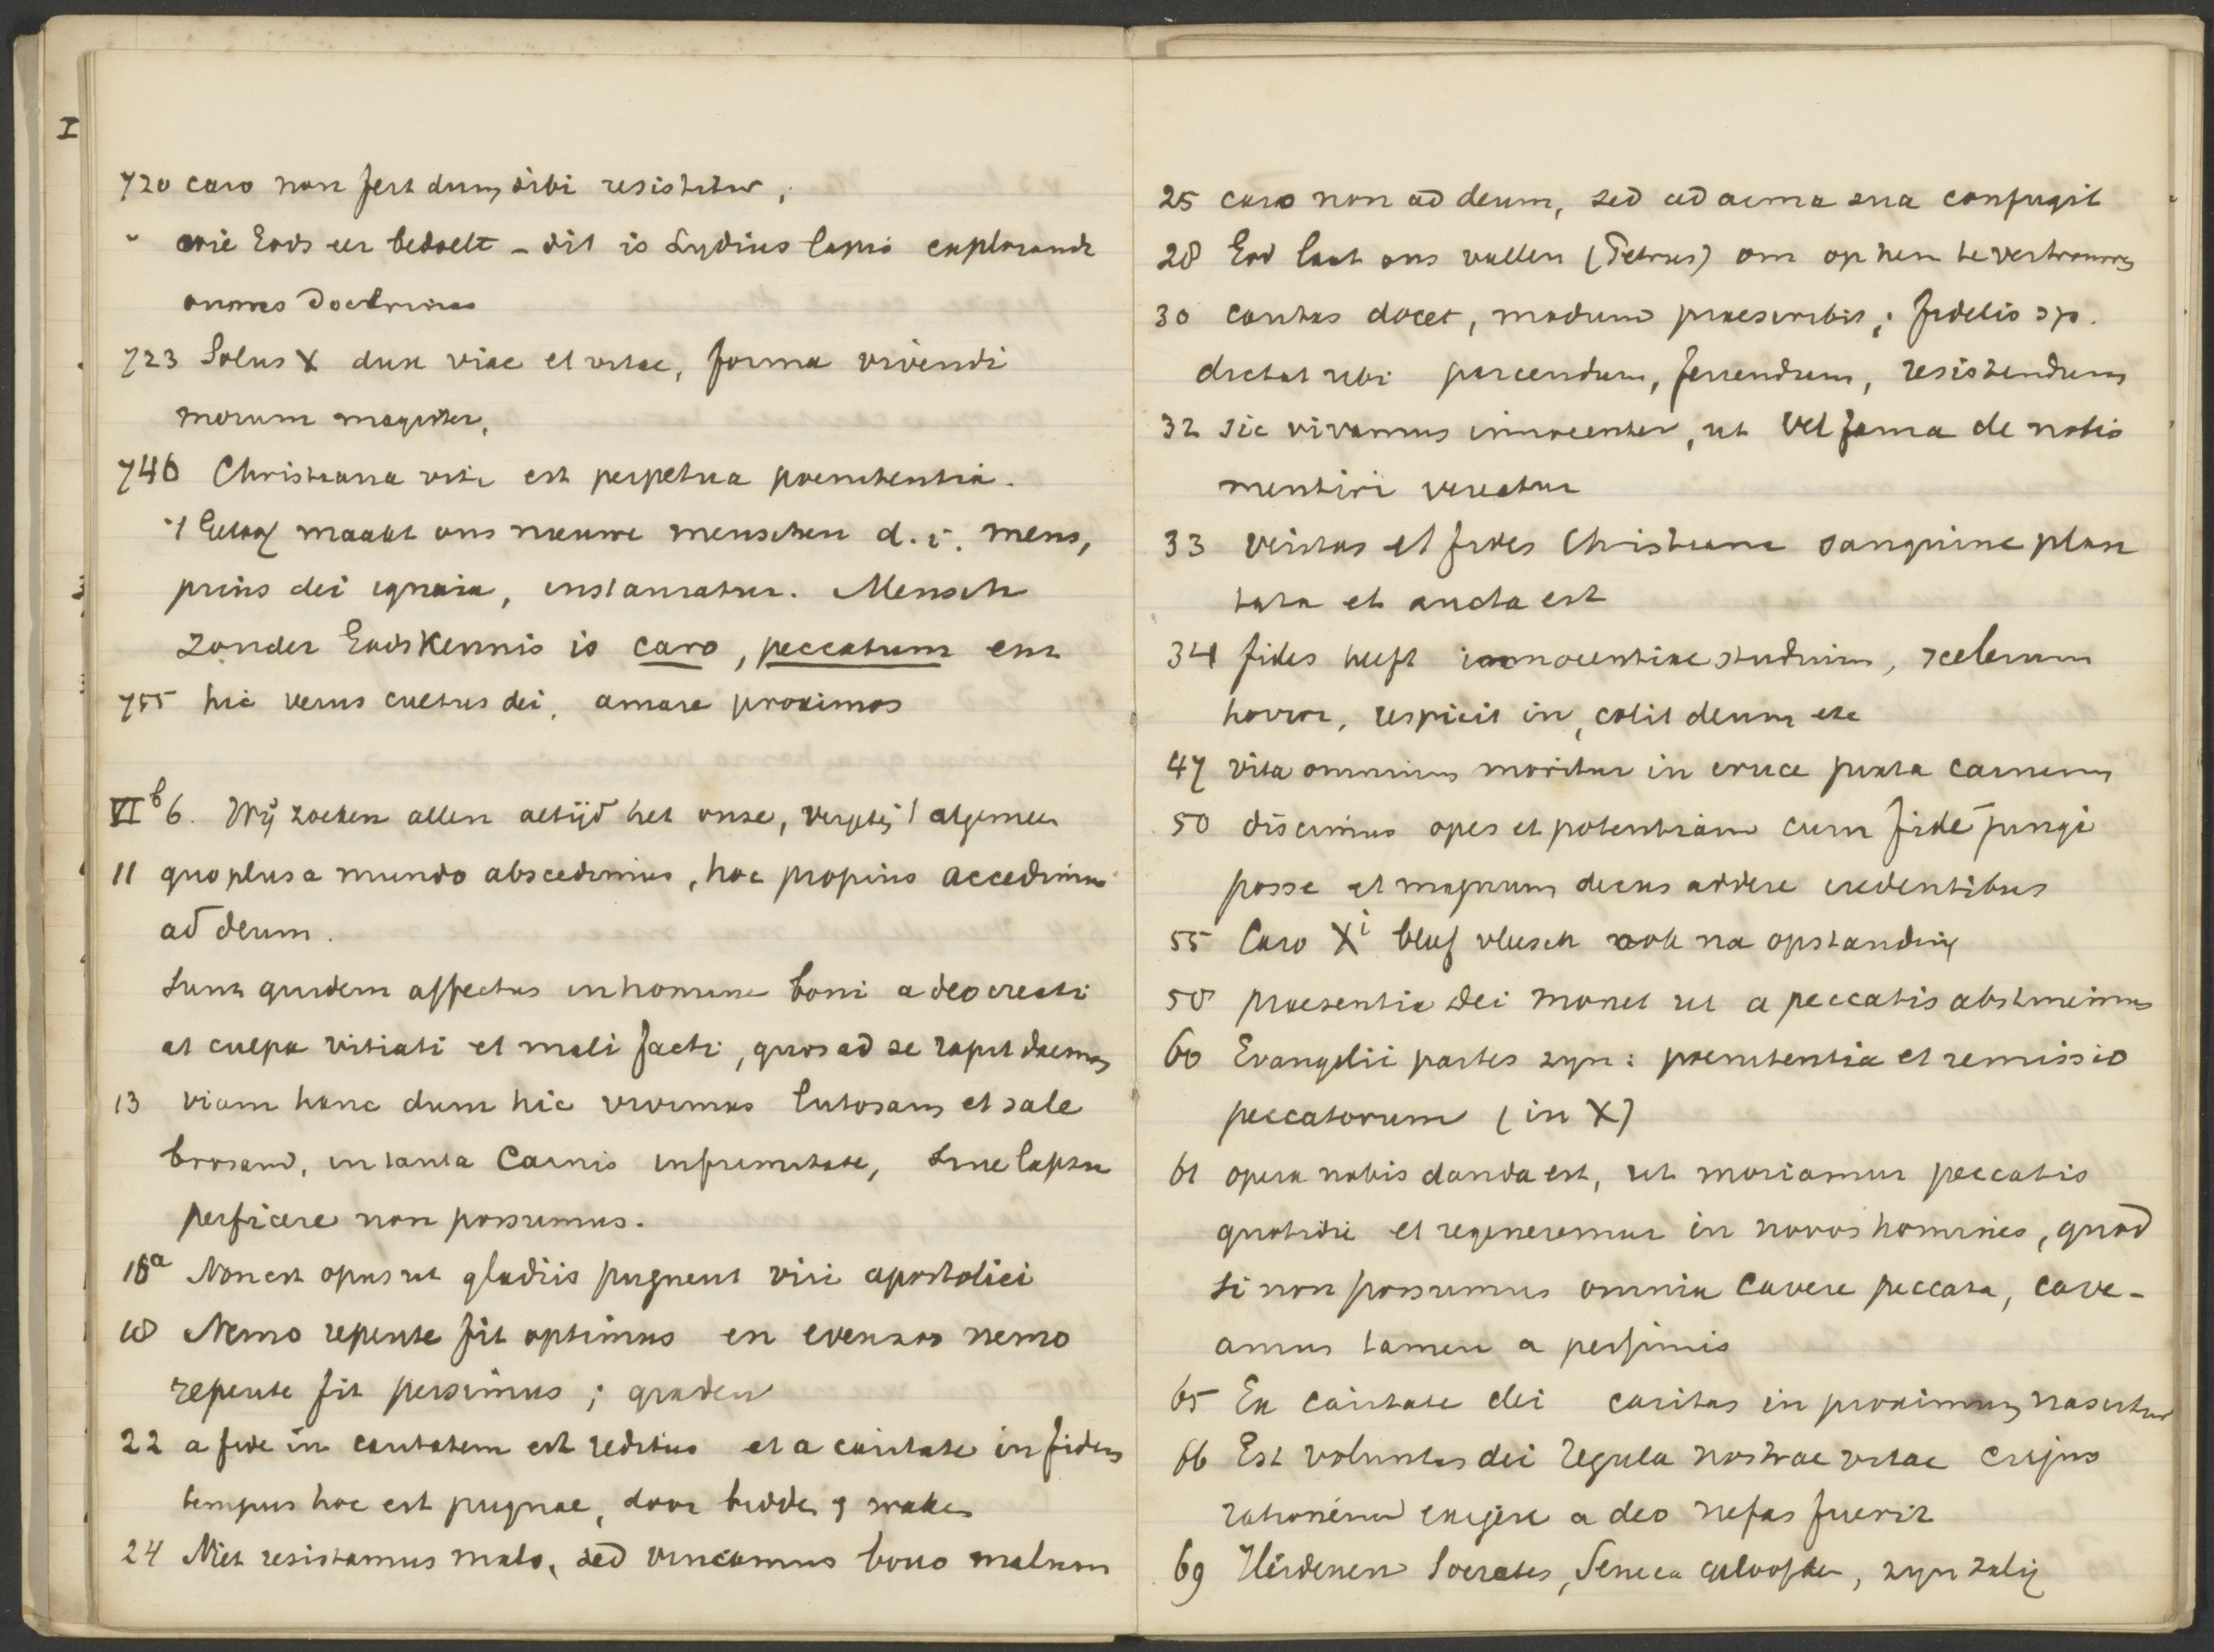 I
720 caro non fert dum sibi resistitur,
" wie Gods eer bedoelt – dit is Lydius lapis explorandi
omnes doctrinas
723 Solus X dux viae et vitae, forma vivendi
morum magister.
746 Christiana vita est perpetua poenitentia.
't Geloof maakt ons nieuwe menschen d. i. mens,
prius dei ignara, instauratur. Mensch
zonder Godskennis is caro, peccatum enz
755 hic verus cultus dei, amare proximos
VI b 6. Wij zoeken allen altijd het onze, 't algemeen
11 quo plus a mundo abscedimus, hoc propius accedimus
ad deum.
Sunt quidem affectus in homine boni a deo creati
at culpa vitiati et mali facti, quos ad se rapit daemon
13 viam hanc dum hic vivimus lutosam et sale
brosam, in tanta carnis infirmitate, sine lapsu
perficere non possumus.
18a Non est opus ut gladiis pugnent viri apostolici
18 Nemo repente fit optimus en evenzoo nemo
repente fit pessimus; graden
22 a fide in caritatem est reditus et a caritate in fidem
tempus hoc est pugnae, door bidden & waken
24 Niet resistamus malo, sed vincamus bono malum
25 caro non ad deum, sed ad arma sua confugit
28 God laat ons vallen (Petrus) om op hem te vertrouwen
30 caritas docet, modum praescribit; fidelis sp.
dictat ubi parcendum, ferendum, resistendum
32 sic vivamus innocenter, ut vel fama de nobis
mentiri vereatur
33 veritas et fides Christiana sanguine plan
tata et aucta est
34 fides heeft innocentiae studium, scelerum
horror, respicit in, colit deum etc
47 vita omnium moritur in cruce juxta carnem
50 discimus opes et potentiam cum fide jungi
posse et magnum decus addere credentibus
55 Caro Xi bleef vleesch ook na opstanding
58 praesentia dei monet ut a peccatis abstineamus
60 Evangelii partes zyn: poenitentia et remissio
peccatorum (in X)
61 opera nobis danda est, ut moriamur peccatis
quotidie et regeneremur in novos homines, quod
si non possumus omnia cavere peccata, cave-
amus tamen a pessimis
65 Ex caritate dei caritas in proximum nascitur
66 Est voluntas dei regula nostrae vitae cujus
rationem exigere a deo nefas fuerit
69 Heidenen Socrates, Seneca geloofden, zyn zalig